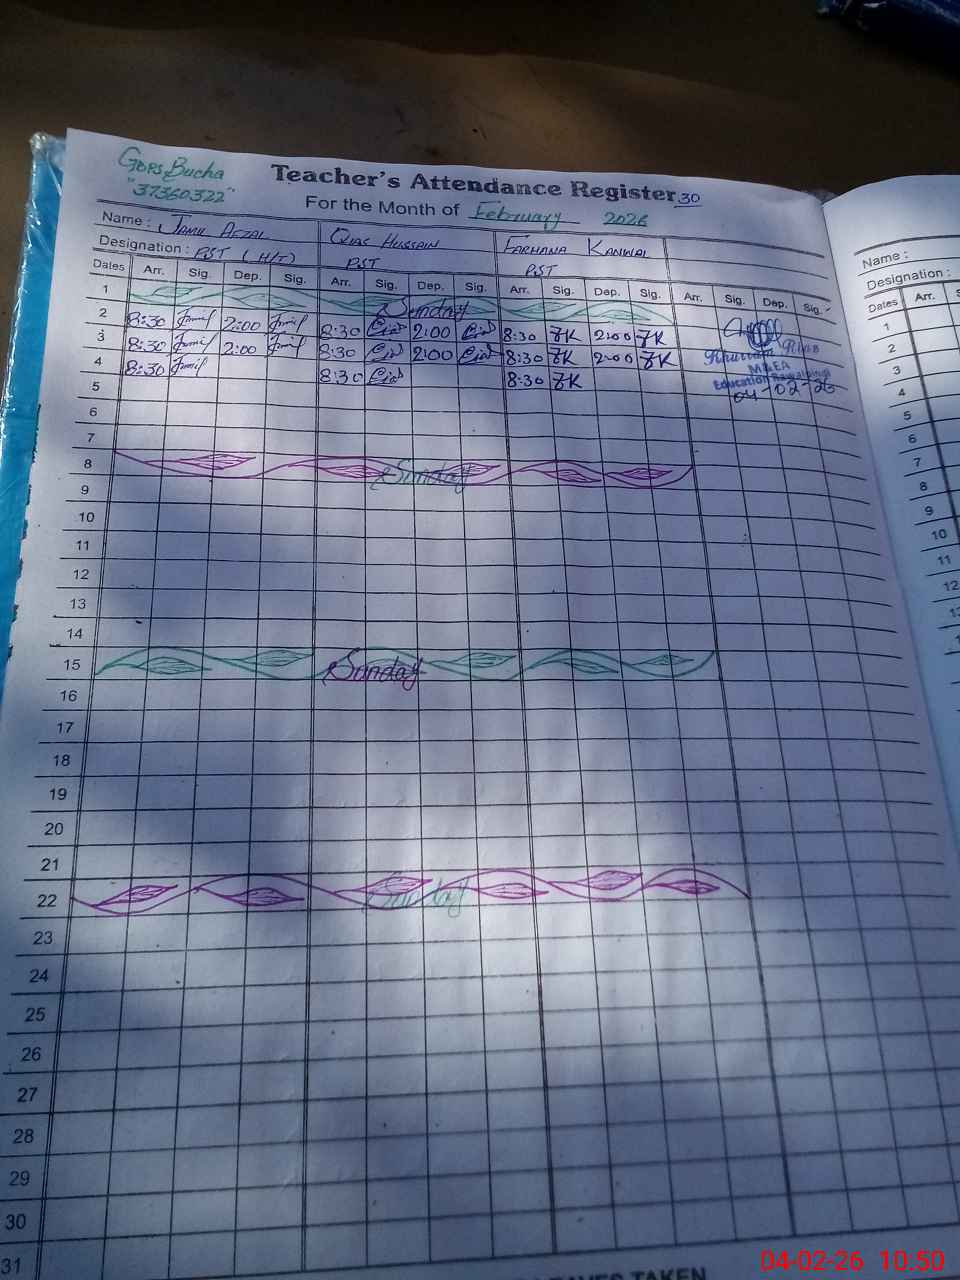 GBPS Bucha
"37360322"
Teacher's Attendance Register 30
For the Month of February 2026
Name : Jamil Afzal Qias Hussain Farhana Kanwal
Designation : PST (H/T) PST PST
Dates Arr. Sig. Dep. Sig. Arr. Sig. Dep. Sig. Arr. Sig. Dep. Sig. Arr. Sig. Dep. Sig.
1 Sunday
2 8:30 Jamil 2:00 Jamil 8:30 2:00 8:30 FK 2:00 FK
3 8:30 Jamil 2:00 Jamil 8:30 2:00 8:30 FK 2:00 FK
4 8:30 Jamil 8:30 8:30 FK
Khurram Riaz
MEA
Education Rawalpindi
04-02-26
5
6
7
8 Sunday
9
10
11
12
13
14
15 Sunday
16
17
18
19
20
21
22 Sunday
23
24
25
26
27
28
29
30
31
TAKEN
Name :
Designation :
Dates Arr.
1
2
3
4
5
6
7
8
9
10
11
12
04-02-26 10:50